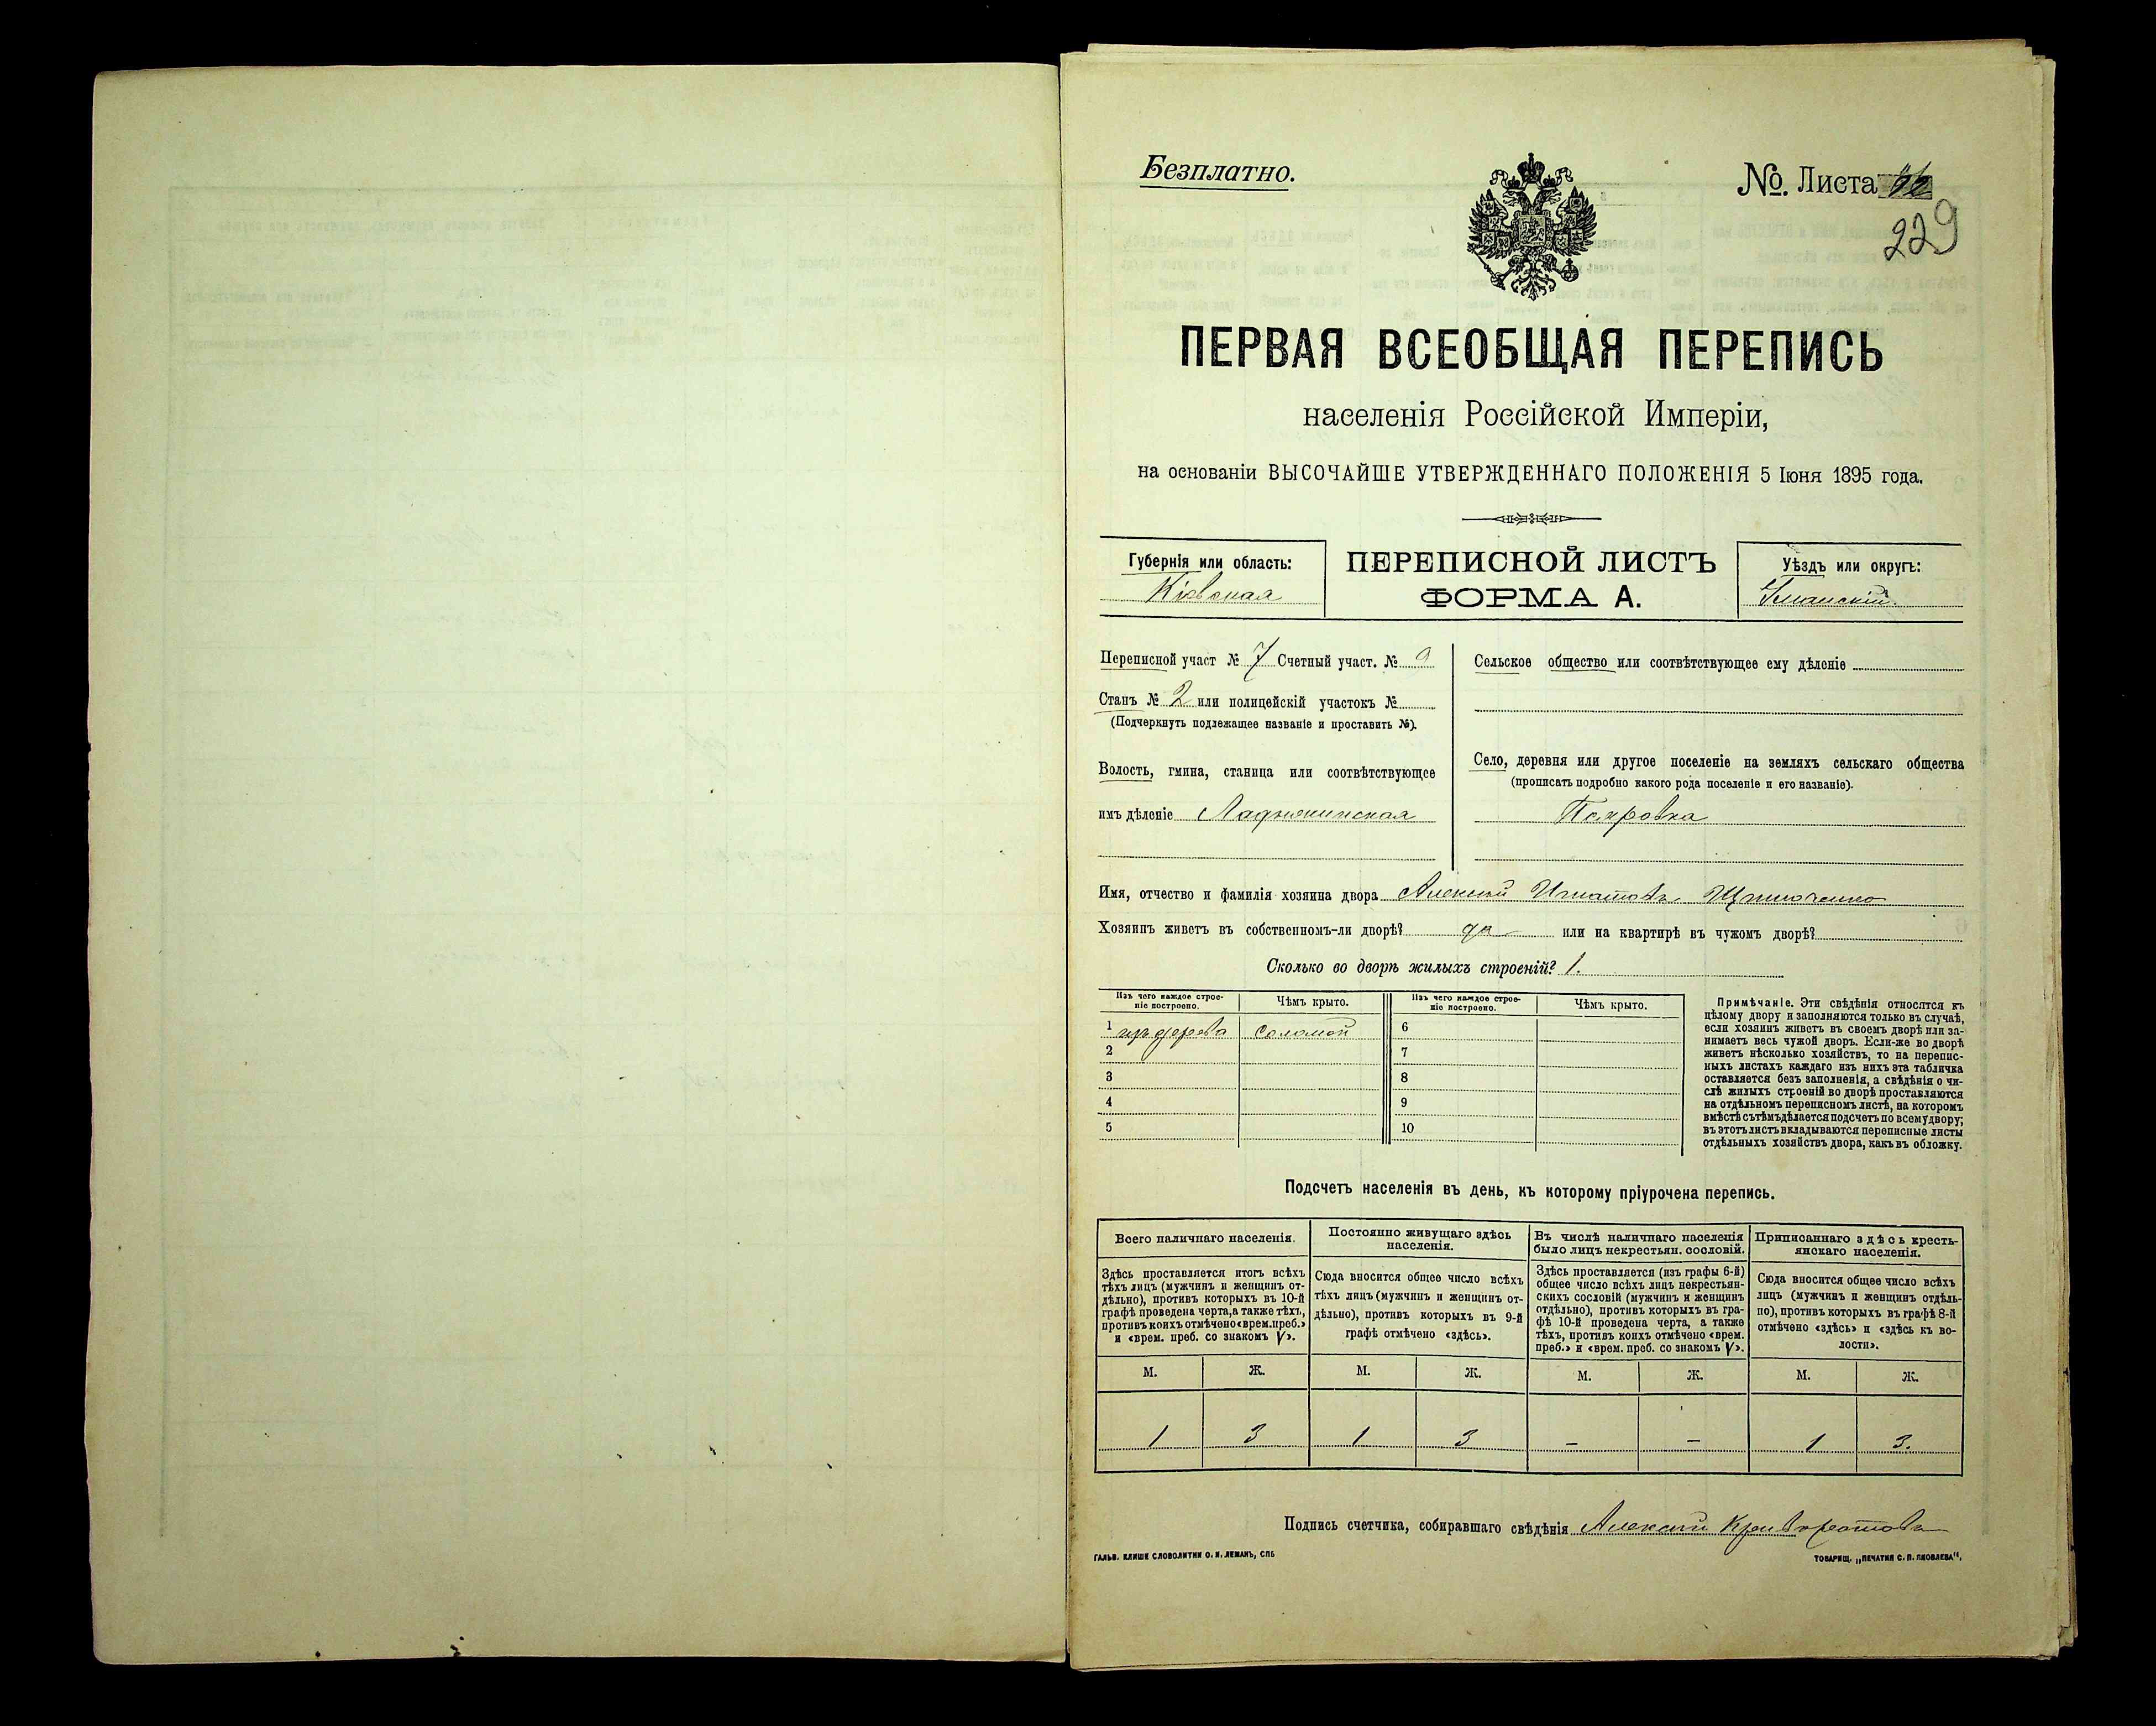 Безплатно.
№. Листа
229
ПЕРВАЯ ВСЕОБЩАЯ ПЕРЕПИСЬ
населенія Россійской Имперіи,
на основаніи ВЫСОЧАЙШЕ УТВЕРЖДЕННАГО ПОЛОЖЕНІЯ 5 Іюня 1895 года.
Губернія или область:
Кіевская
ПЕРЕПИСНОЙ ЛИСТЪ
ФОРМА А.
Уѣздъ или округъ:
Уманскій.
Переписной участ № 7 Счетный участ. № 9
Станъ № 2 или полицейскій участокъ №
(Подчеркнуть подлежащее названіе и проставить №).
Волость, гмина, станица или соотвѣтствующее
имъ дѣленіе Ладыжинская
Сельское общество или соотвѣтствующее ему дѣленіе
Село, деревня или другое поселеніе на земляхъ сельскаго общества
(прописать подробно какого рода поселеніе и его названіе).
Имя, отчество и фамилія хозяина двора Алексей Игнатовъ
Хозяинъ живетъ въ собственномъ-ли дворѣ? да или на квартирѣ въ чужомъ дворѣ?
Сколько во дворѣ жилыхъ строеній? 1.
Изъ чего каждое строе-
ніе построено.
Чѣмъ крыто.
Изъ чего каждое строе-
ніе построено.
Чѣмъ крыто.
1 изъ дерева соломой 6
2 7
3 8
4 9
5 10
Примѣчаніе. Эти свѣдѣнія относятся къ
цѣлому двору и заполняются только въ случаѣ,
если хозяинъ живетъ въ своемъ дворѣ или за-
нимаетъ весь чужой дворъ. Если-же во дворѣ
живетъ нѣсколько хозяйствъ, то на перепис-
ныхъ листахъ каждаго изъ нихъ эта табличка
оставляется безъ заполненія, а свѣдѣнія о чи-
слѣ жилыхъ строеній во дворѣ проставляются
на отдѣльномъ переписномъ листѣ, на которомъ
вмѣстѣ съ тѣмъ дѣлается подсчетъ по всему двору;
въ этотъ листъ вкладываются переписные листы
отдѣльныхъ хозяйствъ двора, какъ въ обложку.
Подсчетъ населенія въ день, къ которому пріурочена перепись.
Всего наличнаго населенія.
Здѣсь проставляется итогъ всѣхъ
тѣхъ лицъ (мужчинъ и женщинъ от-
дѣльно), противъ которыхъ въ 10-й
графѣ проведена черта, а также тѣхъ,
противъ коихъ отмѣчено «врем. преб.»
и «врем. преб. со знакомъ V».
Постоянно живущаго здѣсь
населенія.
Сюда вносится общее число всѣхъ
тѣхъ лицъ (мужчинъ и женщинъ от-
дѣльно), противъ которыхъ въ 9-й
графѣ отмѣчено «здѣсь».
Въ числѣ наличнаго населенія
было лицъ некрестьян. сословій.
Здѣсь проставляется (изъ графы 6-й)
общее число всѣхъ лицъ некрестьян-
скихъ сословій (мужчинъ и женщинъ
отдѣльно), противъ которыхъ въ гра-
фѣ 10-й проведена черта, а также
тѣхъ, противъ коихъ отмѣчено «врем.
преб.» и «врем. преб. со знакомъ V».
Приписаннаго здѣсь кресть-
янскаго населенія.
Сюда вносится общее число всѣхъ
лицъ (мужчинъ и женщинъ отдѣль-
но), противъ которыхъ въ графѣ 8-й
отмѣчено «здѣсь» и «здѣсь къ во-
лости».
М. Ж. М. Ж. М. Ж. М. Ж.
1 3 1 3 – – 1 3.
Подпись счетчика, собиравшаго свѣдѣнія Алексей
ГАЛЬВ. КЛИШЕ СЛОВОЛИТНИ О. И. ЛЕМАНЪ, СПБ
ТОВАРИЩ. „ПЕЧАТНЯ С. П. ЯКОВЛЕВА",